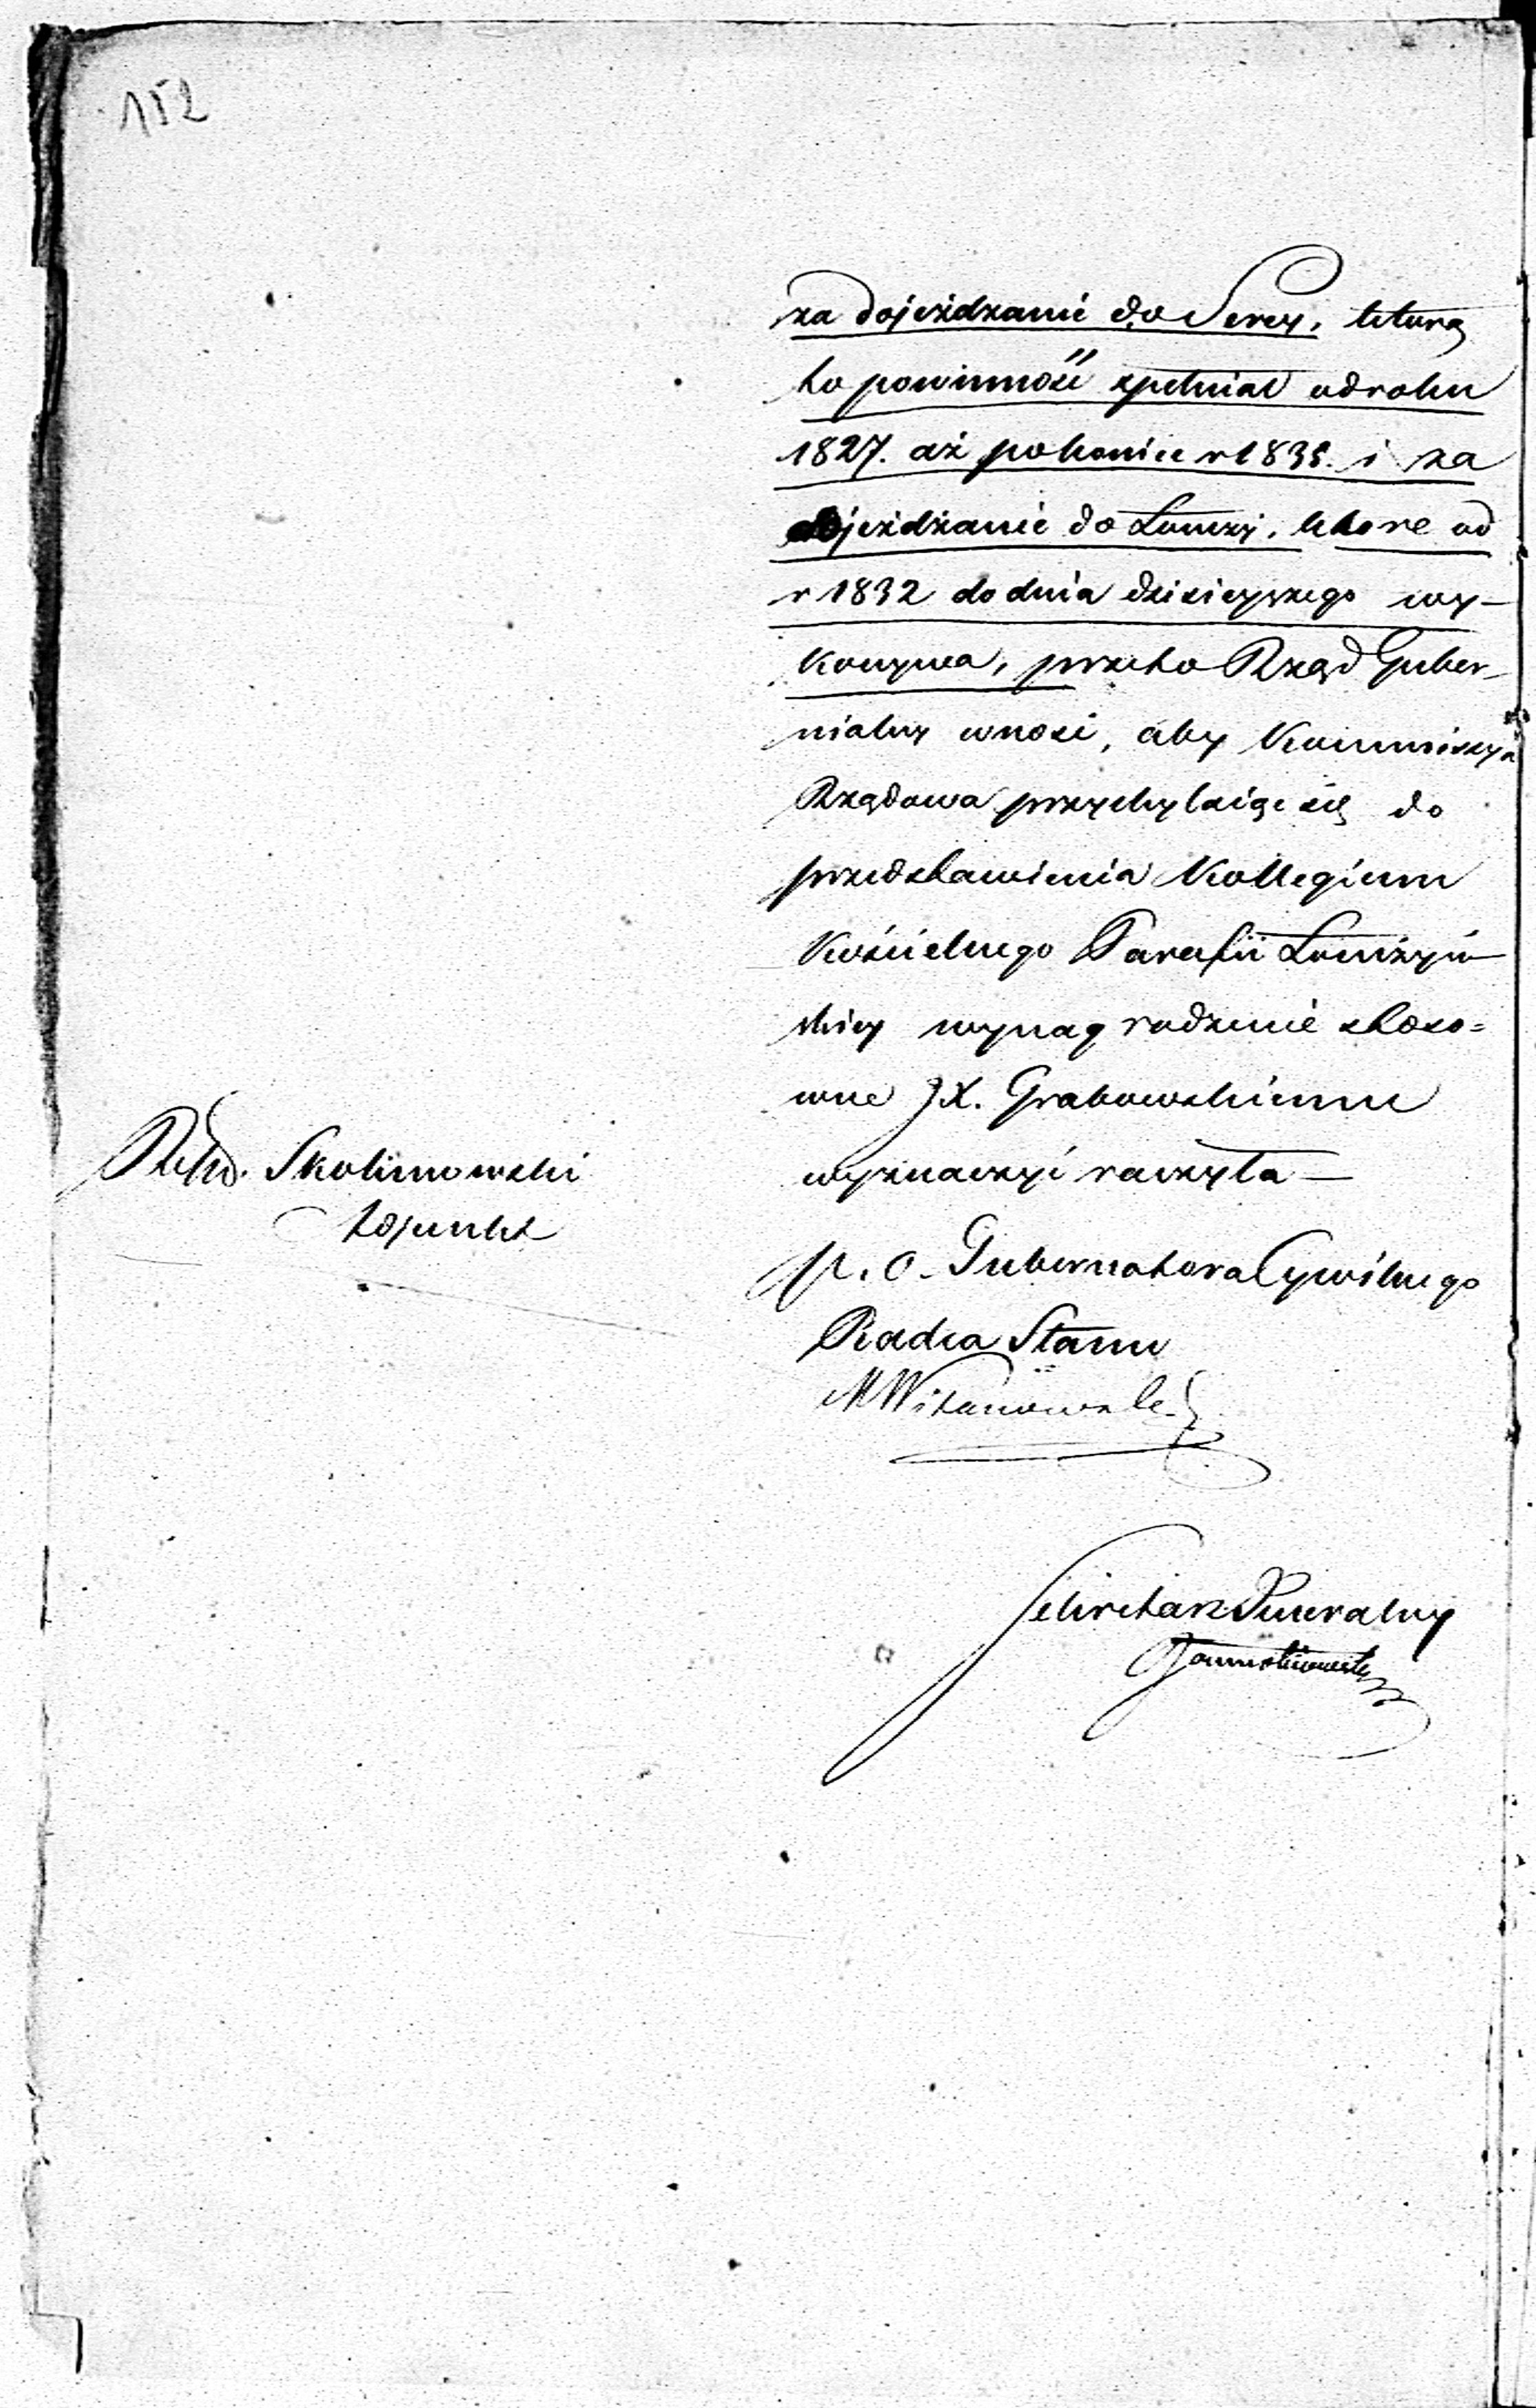 152
za dojeżdzanie do Serey, którą
to powinność spełniał od roku
1827. aż po koniec r 1835. i za
dojeżdżanie do Łomży, które od
r 1832 do dnia dzisieyszego wy-
konywa, przeto Rząd Guber-
nialny wnosi, aby Kommissya
Rządowa przychylaiąc się do
przedstawienia Kollegium
Kościelnego Parafii Łomżyń-
skiey wynagrodzenie stoso=
wne JX. Grabowskiemu
wyznaczyć raczyła —
Skolimowski
Adjunkt
p. o. Gubernatora Cywilnego
Radca Stanu
Sekretarz Jeneralny